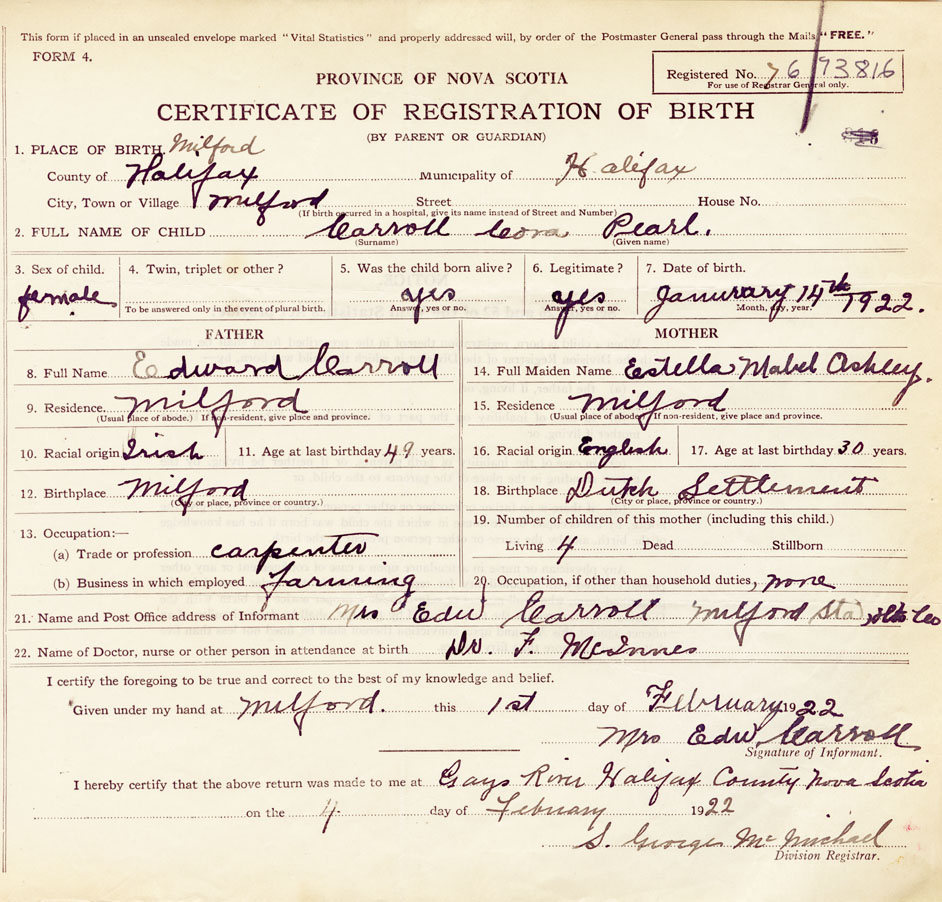 This form if placed in an unsealed envelope marked "Vital Statistics" and properly addressed will, by order of the Postmaster General pass through the Mails "FREE."
FORM 4.
Registered No. 7673816
For use of Registrar General only.
PROVINCE OF NOVA SCOTIA
CERTIFICATE OF REGISTRATION OF BIRTH
(BY PARENT OR GUARDIAN)
1. PLACE OF BIRTH Milford
County of Halifax Municipality of Halifax
City, Town or Village Milford Street House No.
(If birth occurred in a hospital, give its name instead of Street and Number)
2. FULL NAME OF CHILD Carroll Cora Pearl.
(Surname) (Given name)
3. Sex of child. 4. Twin, triplet or other? 5. Was the child born alive? 6. Legitimate? 7. Date of birth.
female yes yes Janurary 14th 1922.
To be answered only in the event of plural birth. Answer, yes or no. Answer, yes or no. Month, day, year.
FATHER
8. Full Name Edward Carroll
9. Residence Milford
(Usual place of abode.) If non-resident, give place and province.
10. Racial origin Irish 11. Age at last birthday 49 years.
12. Birthplace Milford
(City or place, province or country.)
13. Occupation:—
(a) Trade or profession carpenter
(b) Business in which employed farming
MOTHER
14. Full Maiden Name Estella Mabel Ashley.
15. Residence Milford
(Usual place of abode.) If non-resident, give place and province.
16. Racial origin English 17. Age at last birthday 30 years.
18. Birthplace Dutch Settlement
(City or place, province or country.)
19. Number of children of this mother (including this child.)
Living 4 Dead Stillborn
20. Occupation, if other than household duties, none
21. Name and Post Office address of Informant Mrs Edw Carroll Milford Sta, Hts Co
22. Name of Doctor, nurse or other person in attendance at birth Dr. F. McInnes
I certify the foregoing to be true and correct to the best of my knowledge and belief.
Given under my hand at Milford. this 1st day of February 1922
Mrs Edw Carroll
Signature of Informant.
I hereby certify that the above return was made to me at Gays River Halifax County Nova Scotia
on the 4 day of February 1922
S. George McMichael
Division Registrar.